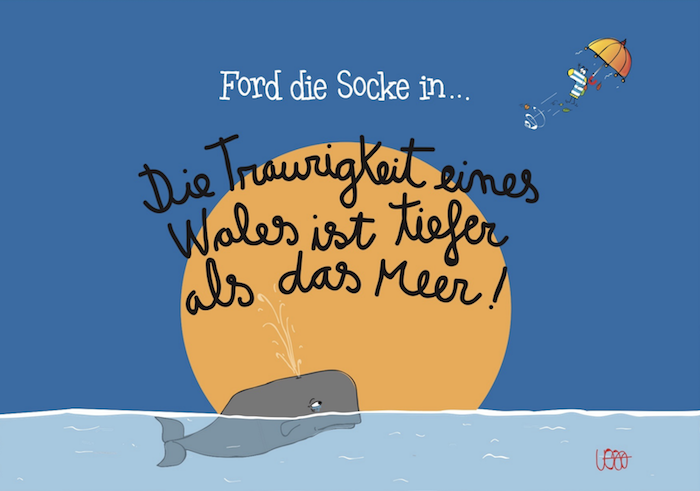 Ford die Socke in...
Die Traurigkeit eines
Wales ist tiefer
als das Meer!